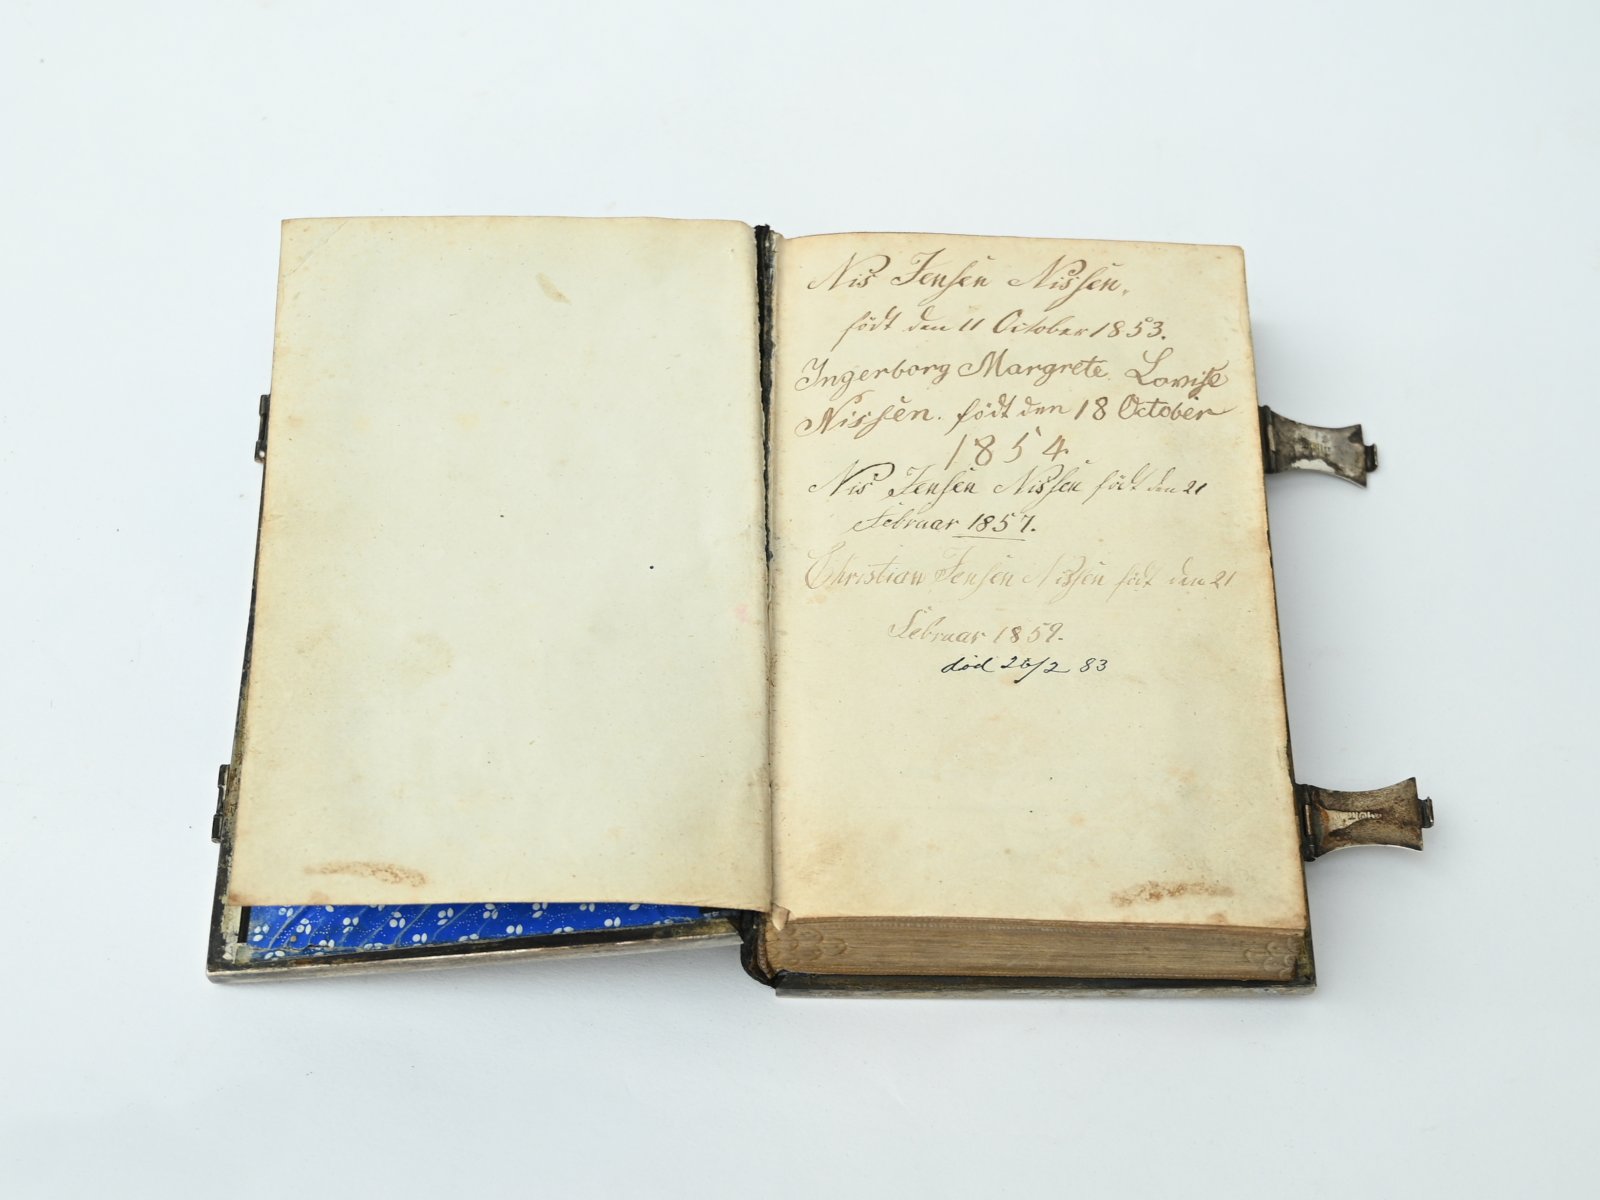 Nis Jensen Nissen.
födt den 11 October 1853.
Ingerborg Margrete Lovise
Nissen. födt den 18 October
1854
Nis Jensen Nissen födt den 21
Februar 1857.
Christian Jensen Nissen födt den 21
Februar 1859.
död 26/2 83